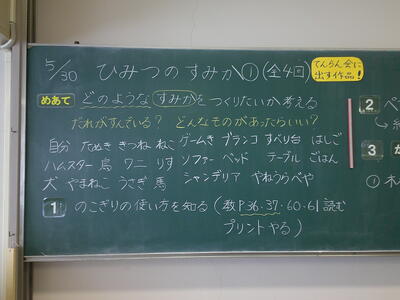 5/30 ひみつのすみか① (全4回)
てんらん会に
出す作品!
めあて どのような すみかをつくりたいか考える
だれがすんでいる? どんなものがあったらいい?
自分 たぬき きつね ねこ ゲームき ブランコ すべり台 はしご
ハムスター 鳥 ワニ りす ソファー ベッド テーブル ごはん
犬 やまねこ うさぎ 馬 シャンデリア やねうらべや
1 のこぎりの使い方を知る (教P36.37.60.61読む
プリントやる)
2 ペ
3 か
① 木